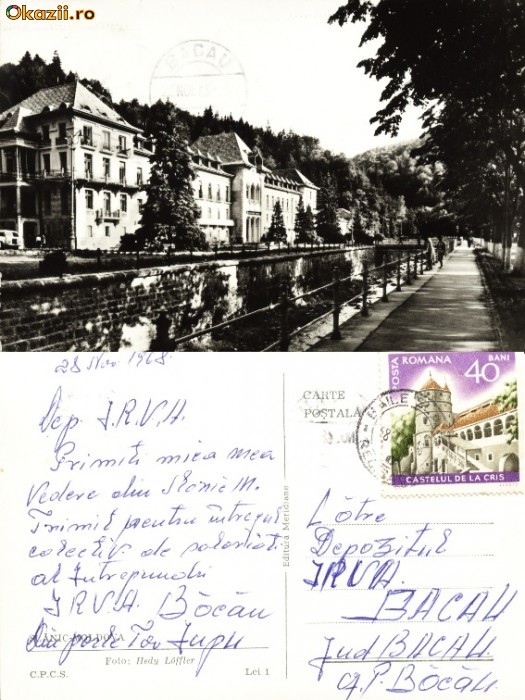 Okazii.ro
BACAU
28 Nov 1968.
Dep. I.R.V.A.
Primiti mica mea
Vedere din Slănic M.
Trimit pentru întregul
colectiv de salariati
al Intreprinderi
I.R.V.A. Băcău
SLĂNIC-MOLDOVA
din partea Tov
Foto: Hedy Löffler
C.P.C.S.
Lei 1
Editura Meridiane
CARTE
POȘTALĂ
POSTA ROMANA
40 BANI
CASTELUL DE LA CRIS
Către
Depozitul
IRVA.
BACAU
Jud BACAU.
Băcău